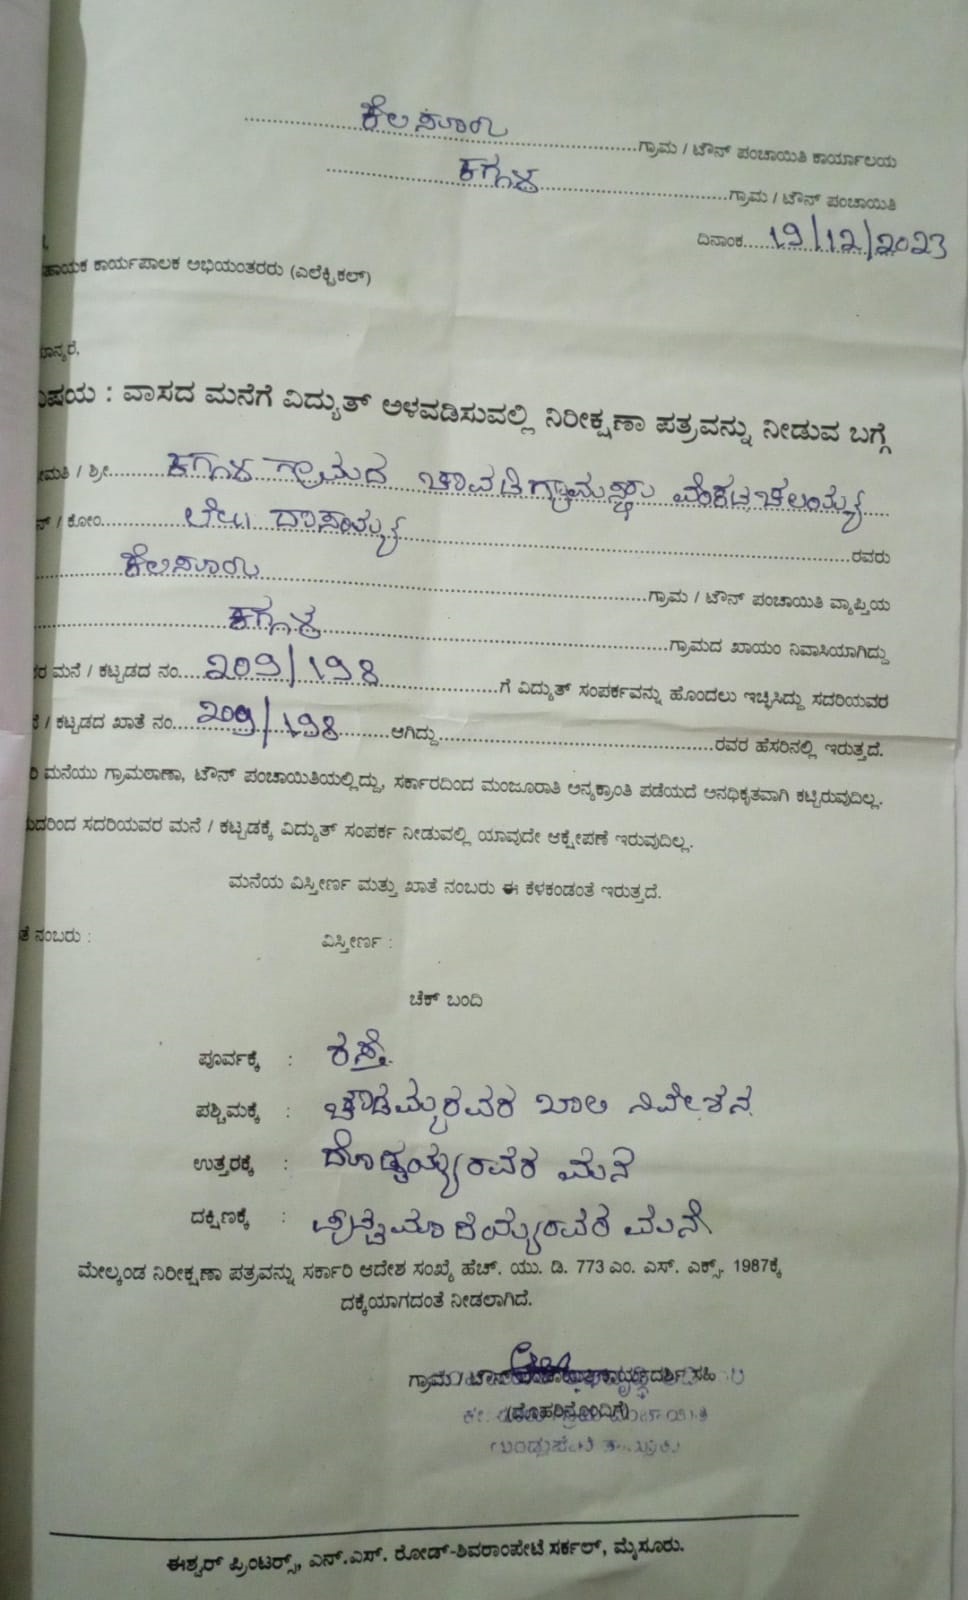 ಕೆಲಸೂರು ಗ್ರಾಮ / ಟೌನ್ ಪಂಚಾಯಿತಿ ಕಾರ್ಯಾಲಯ
ಕಗ್ಗಳ ಗ್ರಾಮ / ಟೌನ್ ಪಂಚಾಯಿತಿ
ದಿನಾಂಕ 19/12/2023
ಹಾಯಕ ಕಾರ್ಯಪಾಲಕ ಅಭಿಯಂತರರು (ಎಲೆಕ್ಟ್ರಿಕಲ್)
ಮಾನ್ಯರೆ,
ವಿಷಯ : ವಾಸದ ಮನೆಗೆ ವಿದ್ಯುತ್ ಅಳವಡಿಸುವಲ್ಲಿ ನಿರೀಕ್ಷಣಾ ಪತ್ರವನ್ನು ನೀಡುವ ಬಗ್ಗೆ
ಮತಿ / ಶ್ರೀ ಕಗ್ಗಳ ಗ್ರಾಮದ ಚಾವಡಿ ಗ್ರಾಮಸ್ಥರು ವೆಂಕಟಚಲಯ್ಯ
ನ್ / ಕೋಂ ಲೇಟು ದಾಸಯ್ಯ ರವರು
ಕೆಲಸೂರು ಗ್ರಾಮ / ಟೌನ್ ಪಂಚಾಯಿತಿ ವ್ಯಾಪ್ತಿಯ
ಕಗ್ಗಳ ಗ್ರಾಮದ ಖಾಯಂ ನಿವಾಸಿಯಾಗಿದ್ದು
ರ ಮನೆ / ಕಟ್ಟಡದ ನಂ. 209/198 ಗೆ ವಿದ್ಯುತ್ ಸಂಪರ್ಕವನ್ನು ಹೊಂದಲು ಇಚ್ಛಿಸಿದ್ದು ಸದರಿಯವರ
/ ಕಟ್ಟಡದ ಖಾತೆ ನಂ. 209/198 ಆಗಿದ್ದು ರವರ ಹೆಸರಿನಲ್ಲಿ ಇರುತ್ತದೆ.
ರಿ ಮನೆಯು ಗ್ರಾಮಠಾಣಾ, ಟೌನ್ ಪಂಚಾಯಿತಿಯಲ್ಲಿದ್ದು, ಸರ್ಕಾರದಿಂದ ಮಂಜೂರಾತಿ ಅನ್ಯಕ್ರಾಂತಿ ಪಡೆಯದೆ ಅನಧಿಕೃತವಾಗಿ ಕಟ್ಟಿರುವುದಿಲ್ಲ.
ದರಿಂದ ಸದರಿಯವರ ಮನೆ / ಕಟ್ಟಡಕ್ಕೆ ವಿದ್ಯುತ್ ಸಂಪರ್ಕ ನೀಡುವಲ್ಲಿ ಯಾವುದೇ ಆಕ್ಷೇಪಣೆ ಇರುವುದಿಲ್ಲ.
ಮನೆಯ ವಿಸ್ತೀರ್ಣ ಮತ್ತು ಖಾತೆ ನಂಬರು ಈ ಕೆಳಕಂಡಂತೆ ಇರುತ್ತದೆ.
ತೆ ನಂಬರು : ವಿಸ್ತೀರ್ಣ :
ಚೆಕ್ ಬಂದಿ
ಪೂರ್ವಕ್ಕೆ : ರಸ್ತೆ
ಪಶ್ಚಿಮಕ್ಕೆ : ಚೌಡಮ್ಮರವರ ಖಾಲಿ ನಿವೇಶನ
ಉತ್ತರಕ್ಕೆ : ದೊಡ್ಡಯ್ಯರವರ ಮನೆ
ದಕ್ಷಿಣಕ್ಕೆ : ಮನೆ
ಮೇಲ್ಕಂಡ ನಿರೀಕ್ಷಣಾ ಪತ್ರವನ್ನು ಸರ್ಕಾರಿ ಆದೇಶ ಸಂಖ್ಯೆ ಹೆಚ್. ಯು. ಡಿ. 773 ಎಂ. ಎಸ್. ಎಕ್ಸ್. 1987ಕ್ಕೆ
ದಕ್ಕೆಯಾಗದಂತೆ ನೀಡಲಾಗಿದೆ.
ಗ್ರಾಮ / ಟೌನ್ ಪಂಚಾಯಿತಿ ಕಾರ್ಯದರ್ಶಿ ಸಹಿ
(ಮೊಹರಿನೊಂದಿಗೆ)
ಈಶ್ವರ್ ಪ್ರಿಂಟರ್ಸ್, ಎನ್.ಎಸ್. ರೋಡ್-ಶಿವರಾಂಪೇಟೆ ಸರ್ಕಲ್, ಮೈಸೂರು.